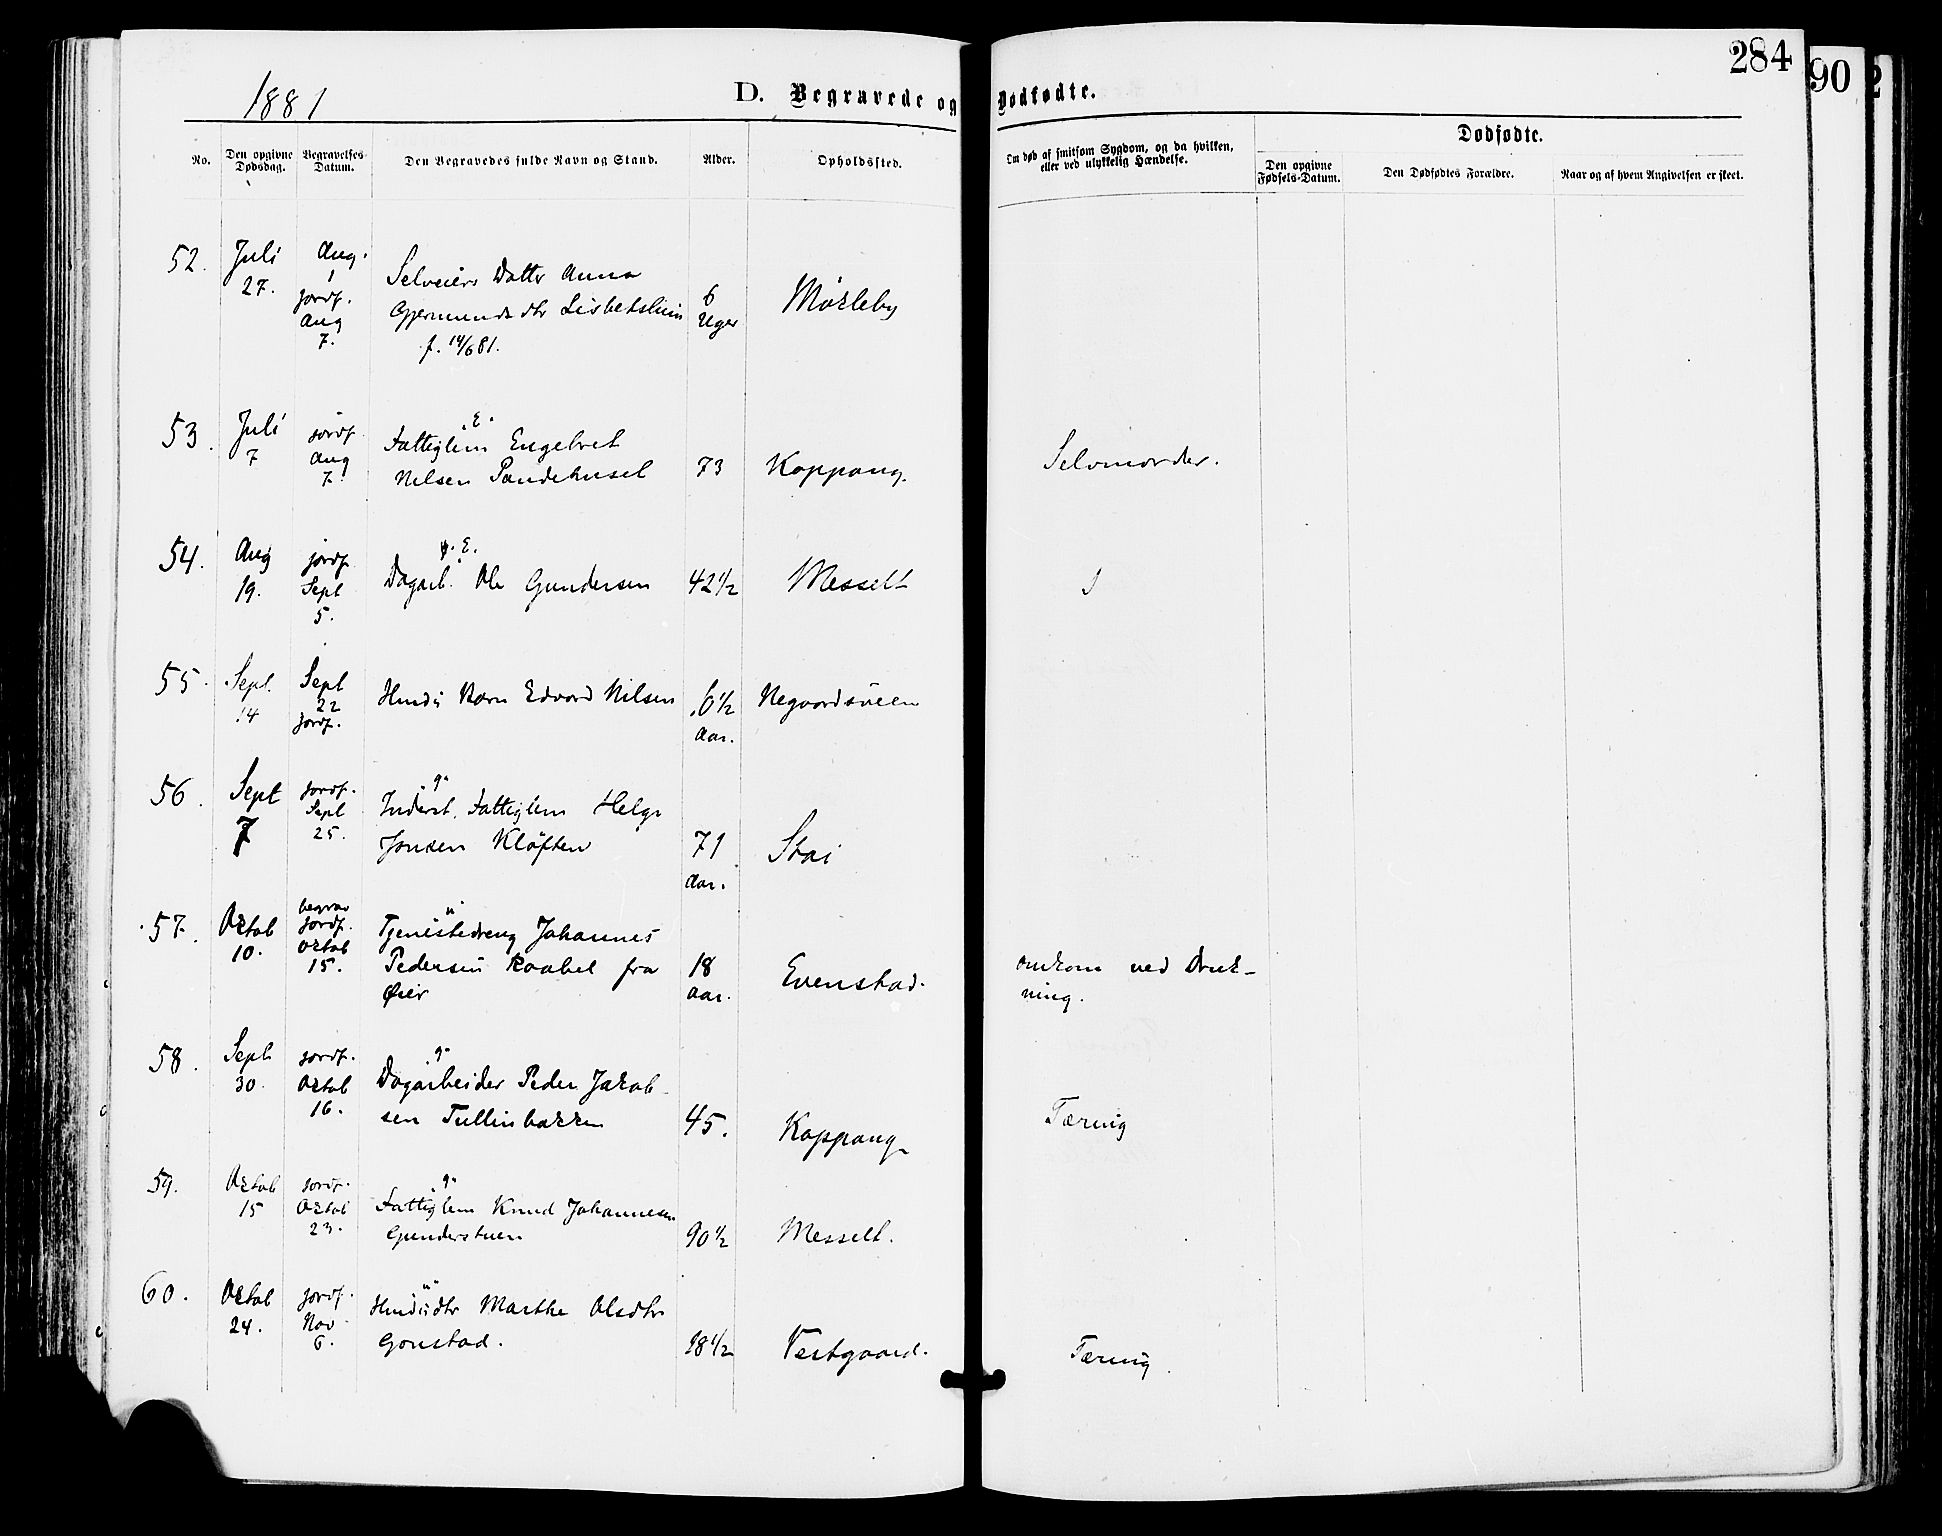 284
90
2
1881
D. Begravede og Dødfødte.
No.
Den opgivne Dødsdag.
Begravelses-Datum.
Den Begravedes fulde Navn og Stand.
Alder.
Opholdssted.
Om død af smitsom Sygdom, og da hvilken,
eller ved ulykkelig Hændelse.
Dødfødte.
Den opgivne Fødsels-Datum.
Den Dødfødtes Forældre.
Naar og af hvem Angivelsen er skeet.
52.
Juli
27.
Aug.
1
jordf.
Aug
7.
Selveiers Datter Anna
Gjermundsdtr Lisbetsheim
f. 14/6 81.
6
Uger
Møkleby
53.
Juli
7
jordf.
Aug
7.
"E"
Fattiglem Engebret
Nilsen Pandehusel
73
Koppang.
Selvmorder.
54.
Aug
19.
jordf
Sept
5.
E.
Dagarb. Ole Gundersen
42 1/2
Messelt
55.
Sept.
14
Sept
22
jordf.
Husm. Barn Edvard Nilsen
6 1/2
Aar.
Negaardsveen
56.
Sept
7
jordf.
Sept
25.
"g"
Inderst. Fattiglem Helge
Jonsen Kløften
71
Aar.
Stai
57.
Oktob
10.
begrav
jordf.
Oktob
15.
"u"
Tjenestedreng Johannes
Pedersen Raabel fra
Øier
18
aar.
Evenstad.
omkom ved Druk-
ning.
58.
Sept.
30.
jordf.
Oktob
16.
"g"
Dagarbeider Peder Jakob-
sen Tullinbakken
45.
Koppang
Tæring
59.
Oktob
15
jordf.
Oktob
23.
"g"
Fattiglem Knud Johannesen
Gunderstuen
90 1/2
Messelt.
60.
Oktob
24.
jordf.
Nov
6.
"u"
Husm.dtr Marthe Olsdtr
Gonstad.
18 1/2
Vestgaard.
Tæring.